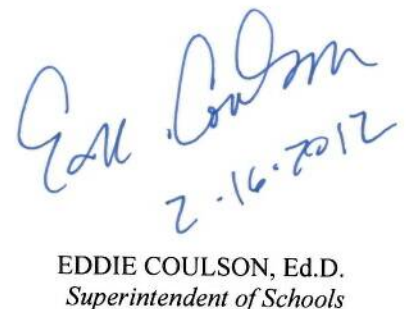 Eddie Coulson
2-16-2012
EDDIE COULSON, Ed.D.
Superintendent of Schools